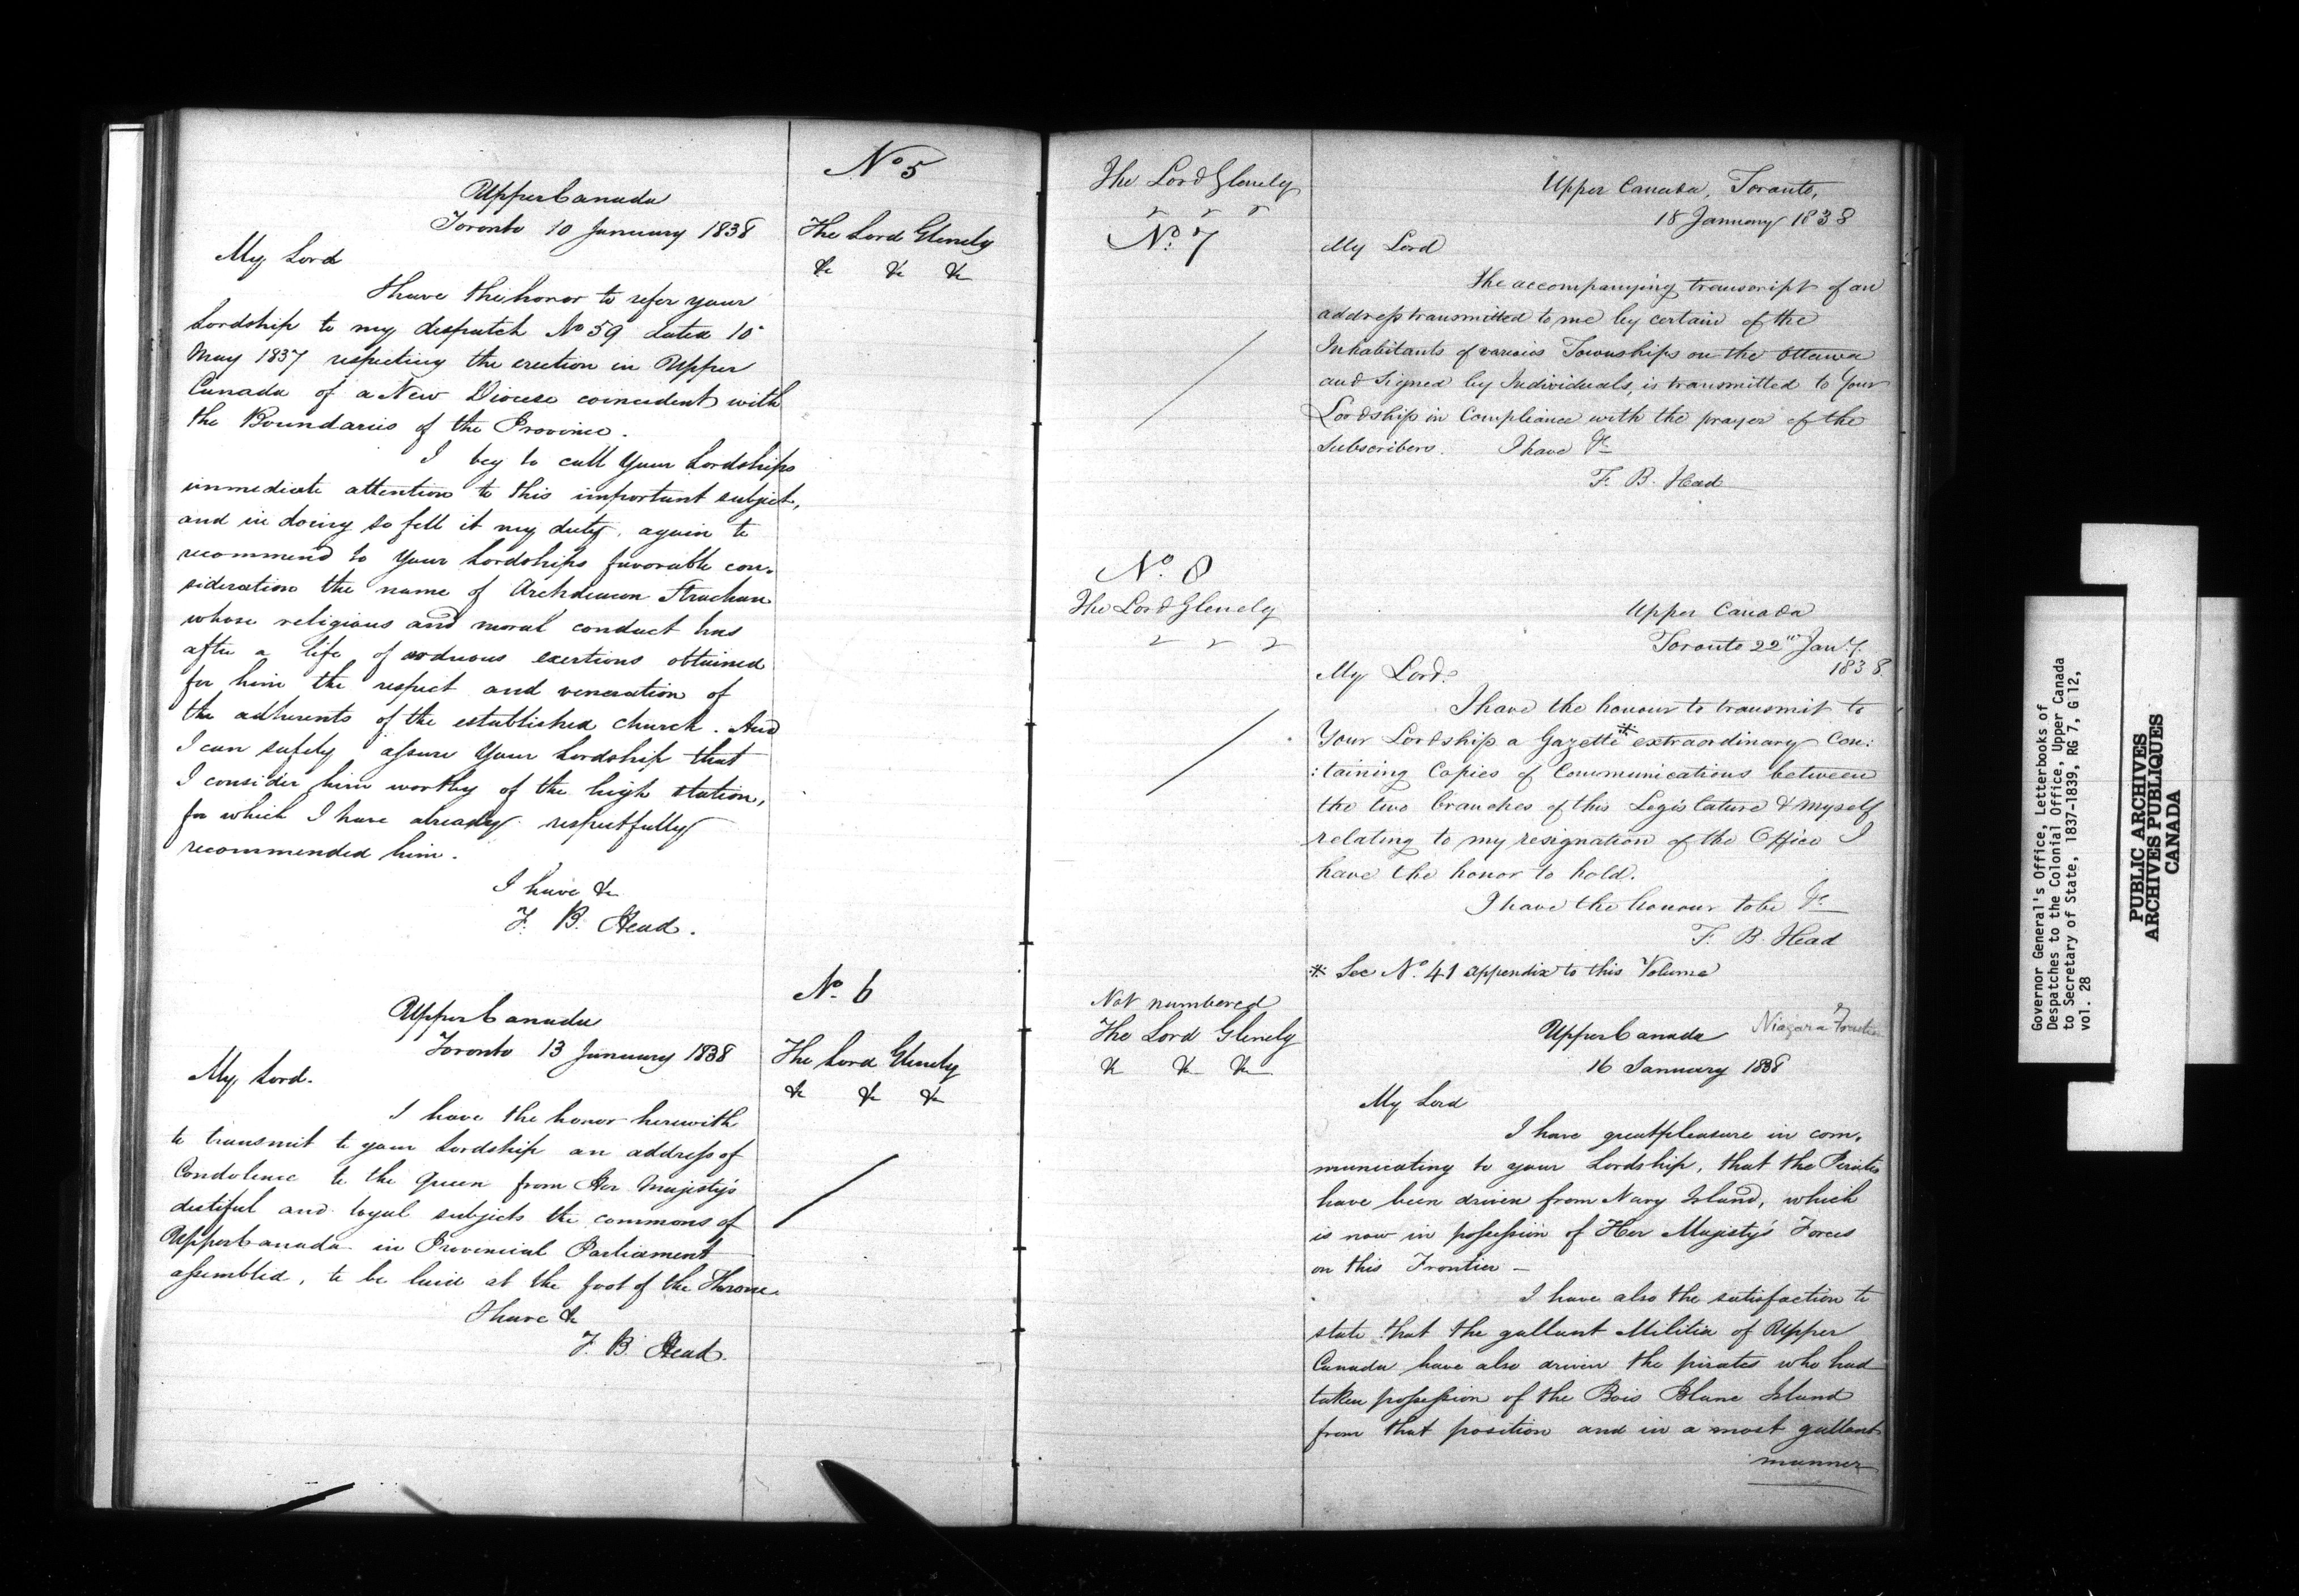 No 5
Upper Canada
Toronto 10 January 1838
The Lord Glenelg
&c &c &c
My Lord
I have the honor to refer your
Lordship to my despatch No 59 dated 10
May 1837 respecting the erection in Upper
Canada of a New Diocese coincident with
the Boundaries of the Province.
I beg to call Your Lordships
immediate attention to this important subject,
and in doing so fell it my duty, again to
recommend to Your Lordships favorable con-
sideration the name of Archdeacon Strachan
whose religious and moral conduct has
after a life of arduous exertions obtained
for him the respect and veneration of
the adherents of the established church. And
I can safely assure Your Lordship that
I consider him worthy of the high station,
for which I have already respectfully
recommended him.
I have &c
F. B. Head.
No. 6
Upper Canada
Toronto 13 January 1838
The Lord Glenelg
&c &c &c
My Lord.
I have the honor herewith
to transmit to your Lordship an address of
Condolence to the Queen from Her Majesty's
dutiful and loyal subjects the commons of
Upper Canada in Provincial Parliament
assembled, to be laid at the foot of the Throne.
I have &c
F. B. Head.
The Lord Glenelg
No. 7
Upper Canada, Toronto,
18 January 1838
My Lord
The accompanying transcript of an
address transmitted to me by certain of the
Inhabitants of various Townships on the Ottawa
and Signed by Individuals, is transmitted to Your
Lordship in Compliance with the prayer of the
Subscribers. I have &c
F. B. Head
No. 8
The Lord Glenelg
Upper Canada
Toronto 22nd Jany.
1838
My Lord.
I have the honour to transmit to
Your Lordship a Gazette * extraordinary Con:
:taining Copies of Communications between
the two branches of this Legislature & myself
relating to my resignation of the Office I
have the honor to hold.
I have the honour to be &c
F. B. Head
* See No. 41 appendix to this Volume
Not numbered
The Lord Glenelg
&c &c &c
Upper Canada Niagara Frontier
16 January 1838
My Lord
I have great pleasure in com-
municating to your Lordship, that the Pirates
have been driven from Navy Island, which
is now in possession of Her Majesty's Forces
on this Frontier —
I have also the satisfaction to
state that the gallant Militia of Upper
Canada have also driven the pirates who had
taken possession of the Bois Blanc Island
from that position and in a most gallant
manner
Governor General's Office, Letterbooks of
Despatches to the Colonial Office, Upper Canada
to Secretary of State, 1837-1839, RG 7, G 12,
vol. 28
PUBLIC ARCHIVES
ARCHIVES PUBLIQUES
CANADA